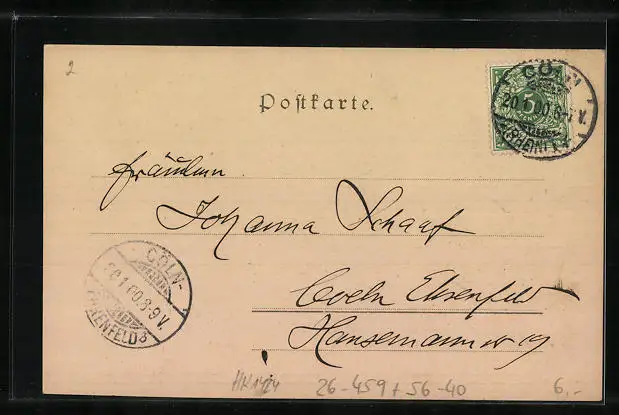 2
Postkarte.
CÖLN
20.1.00.8-9V.
(RHEIN)
5
Fräulein
Johanna Schaaf
Coeln Ehrenfeld
Hansemannstr 19
CÖLN-
20.1.00.8-9V.
EHRENFELD 3
26-459+56-40
6,-